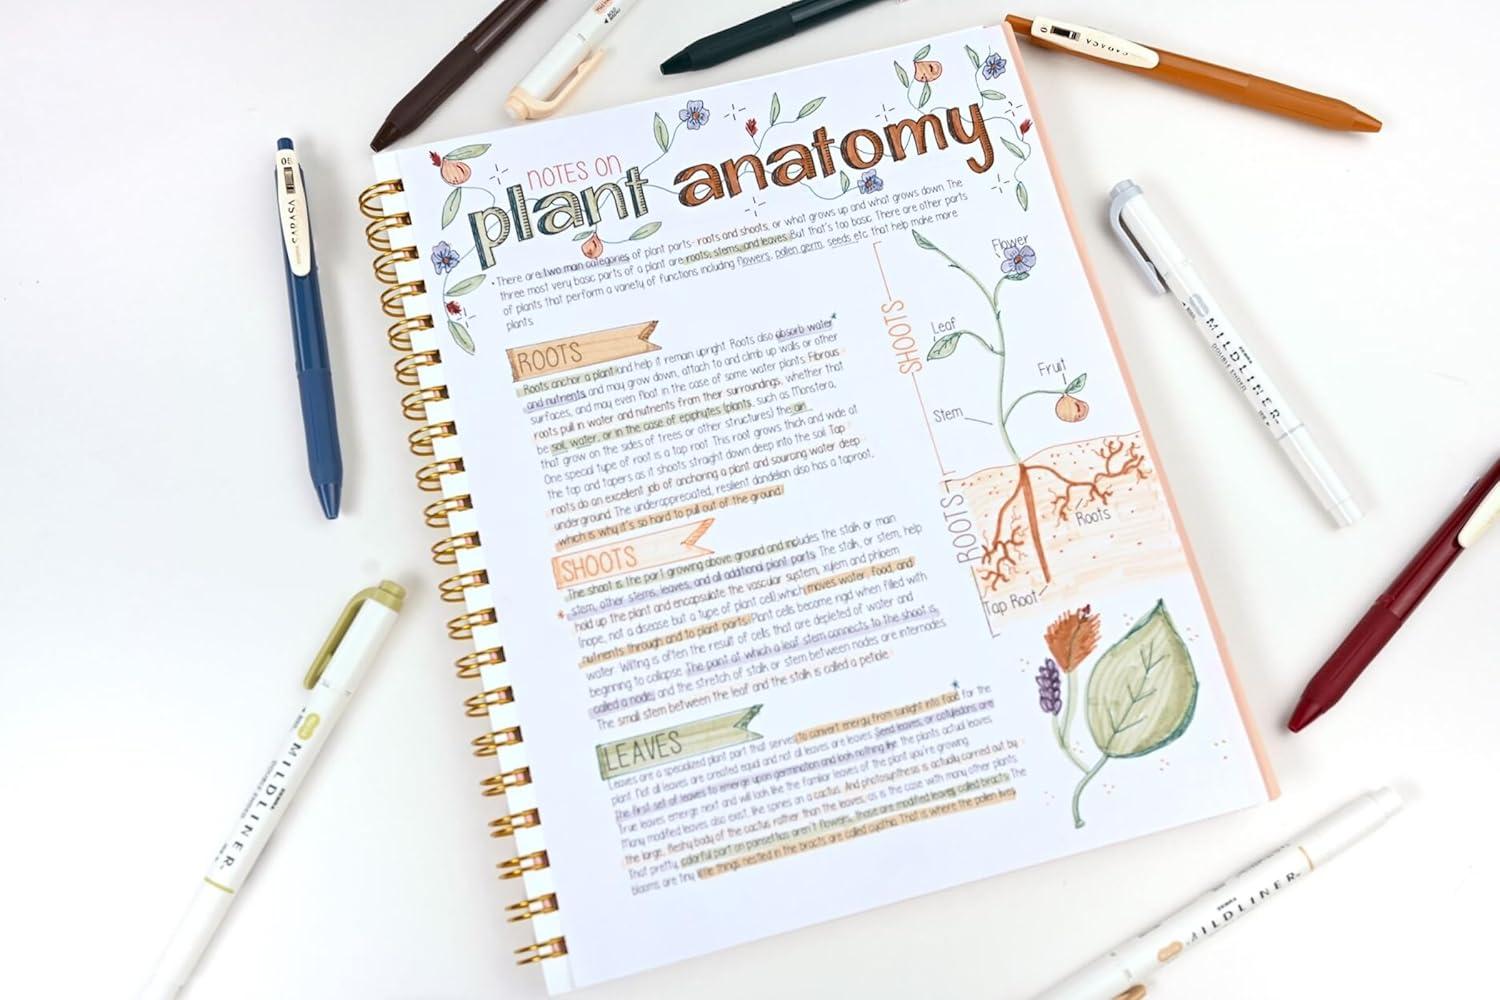 NOTES ON
plant anatomy
• There are two main categories of plant parts- roots and shoots, or what grows up and what grows down. The
three most very basic parts of a plant are roots, stems, and leaves. But that's too basic. There are other parts
of plants that perform a variety of functions including flowers, pollen germ, seeds etc that help make more
plants.
ROOTS
Roots anchor a plant and help it remain upright. Roots also absorb water
and nutrients and may grow down, attach to and climb up walls or other
surfaces, and may even float in the case of some water plants. Fibrous
roots pull in water and nutrients from their surroundings, whether that
be soil, water, or in the case of epiphytes (plants, such as Monstera,
that grow on the sides of trees or other structures) the air.
One special type of root is a tap root. This root grows thick and wide at
the top and tapers as it shoots straight down deep into the soil. Tap
roots do an excellent job of anchoring a plant and sourcing water deep
underground. The underappreciated, resilient dandelion also has a taproot,
which is why it's so hard to pull out of the ground!
SHOOTS
The shoot is the part growing above ground and includes the stalk or main
stem, other stems, leaves, and all additional plant parts. The stalk, or stem, help
hold up the plant and encapsulate the vascular system, xylem and phloem
(nope, not a disease but a type of plant cell) which moves water, food, and
nutrients through and to plant parts. Plant cells become rigid when filled with
water. Wilting is often the result of cells that are depleted of water and
beginning to collapse. The point at which a leaf stem connects to the shoot is
called a node, and the stretch of stalk or stem between nodes are internodes.
The small stem between the leaf and the stalk is called a petiole.
LEAVES
Leaves are a specialized plant part that serves to convert energy from sunlight into food for the
plant. Not all leaves are created equal and not all leaves are leaves. Seed leaves, or cotyledons are
the first set of leaves to emerge upon germination and look nothing like the plants actual leaves.
True leaves emerge next and will look like the familiar leaves of the plant you're growing.
Many modified leaves also exist, like spines on a cactus. And photosynthesis is actually carried out by
the large, fleshy body of the cactus rather than the leaves, as is the case with many other plants.
That pretty, colorful part on poinsettias aren't flowers, those are modified leaves called bracts. The
blooms are tiny little things nestled in the bracts are called cyathia. That is where the pollen lives.
SHOOTS
Flower
Leaf
Fruit
Stem
ROOTS
Roots
Tap Root
SARASA
05
SARASA
MILDLINER
DOUBLE ENDED
ZEBRA
MILDLINER
DOUBLE ENDED
ZEBRA
MILDLINER